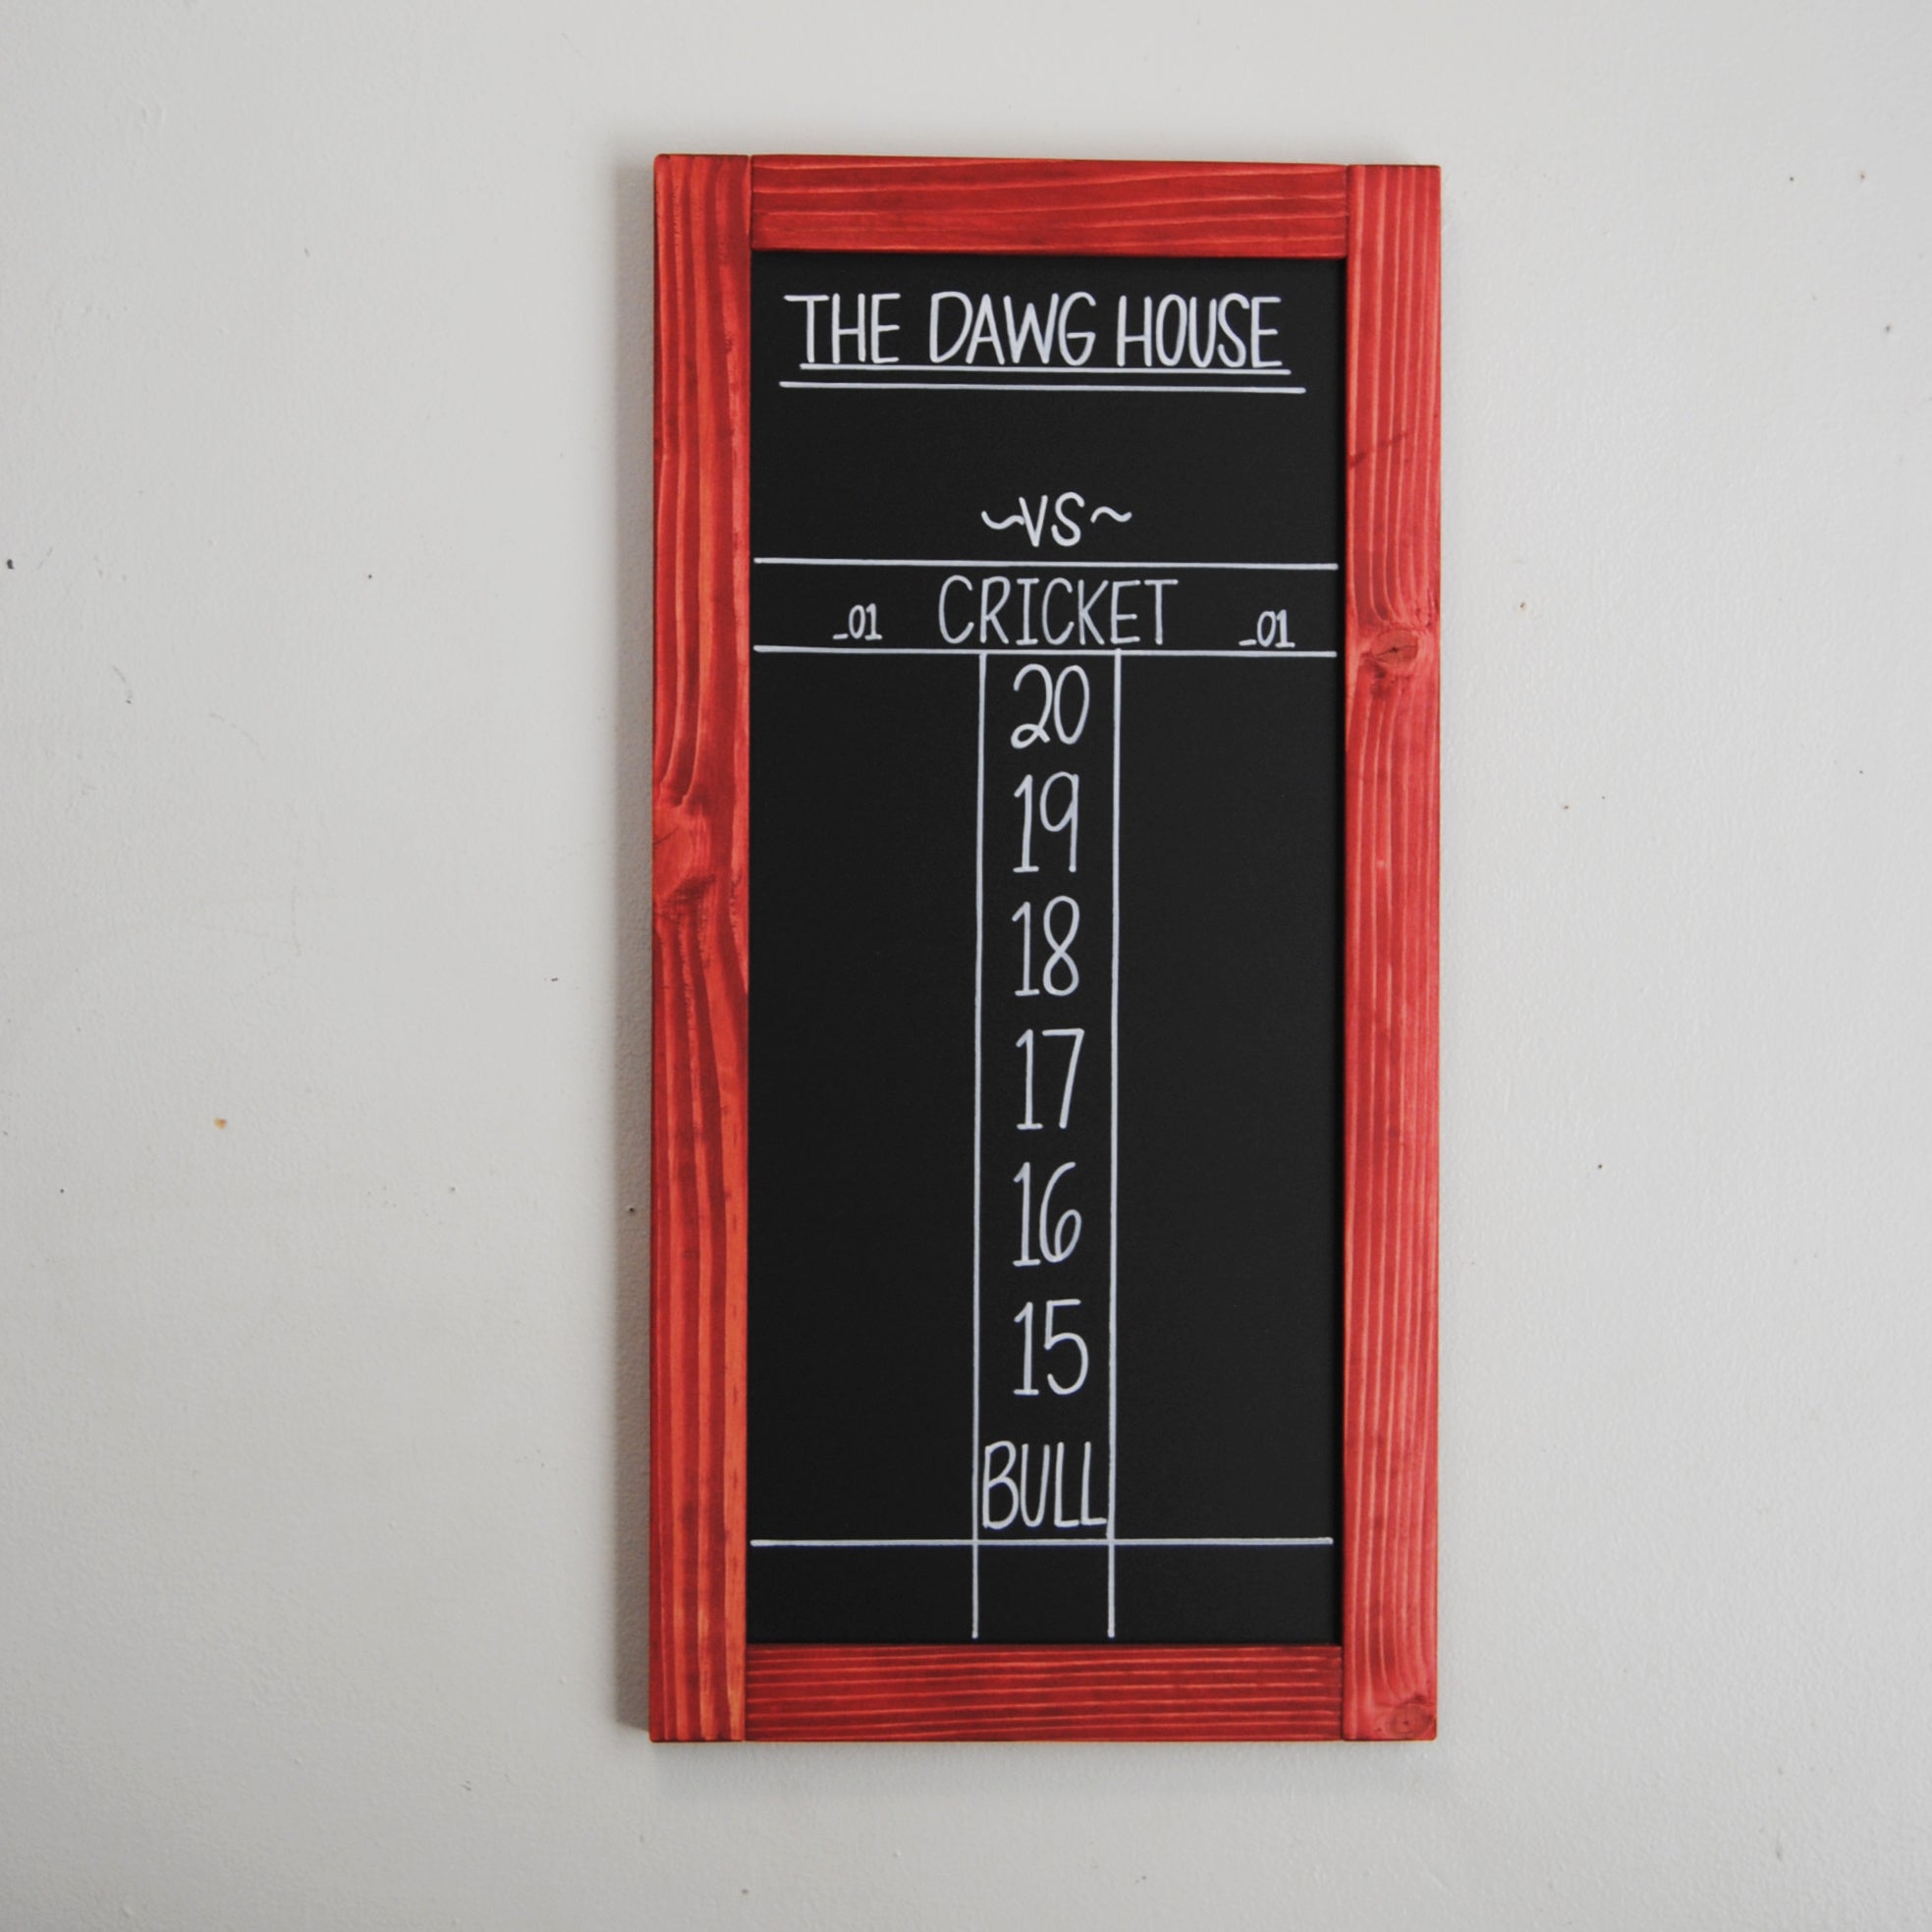 THE DAWG HOUSE
~VS~
_01 CRICKET _01
20
19
18
17
16
15
BULL